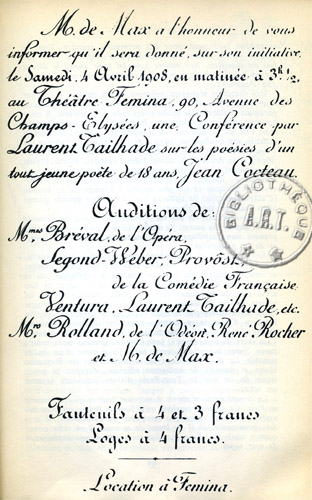 M. de Max a l'honneur de vous
informer qu'il sera donné, sur son initiative,
le Samedi, 4 Avril 1908, en matinée à 3h 1/2,
au Théâtre Femina, 90, Avenue des
Champs-Elysées, une Conférence par
Laurent Tailhade sur les poésies d'un
tout jeune poète de 18 ans, Jean Cocteau.
Auditions de:
Mmes Bréval, de l'Opéra,
Segond-Weber, Provost,
de la Comédie Française
Ventura, Laurent Tailhade, etc.
Mrs Rolland, de l'Odéon, René Rocher
et M. de Max.
Fauteuils à 4 et 3 francs
Loges à 4 francs.
Location à Femina.
BIBLIOTHÈQUE
A.R.T.